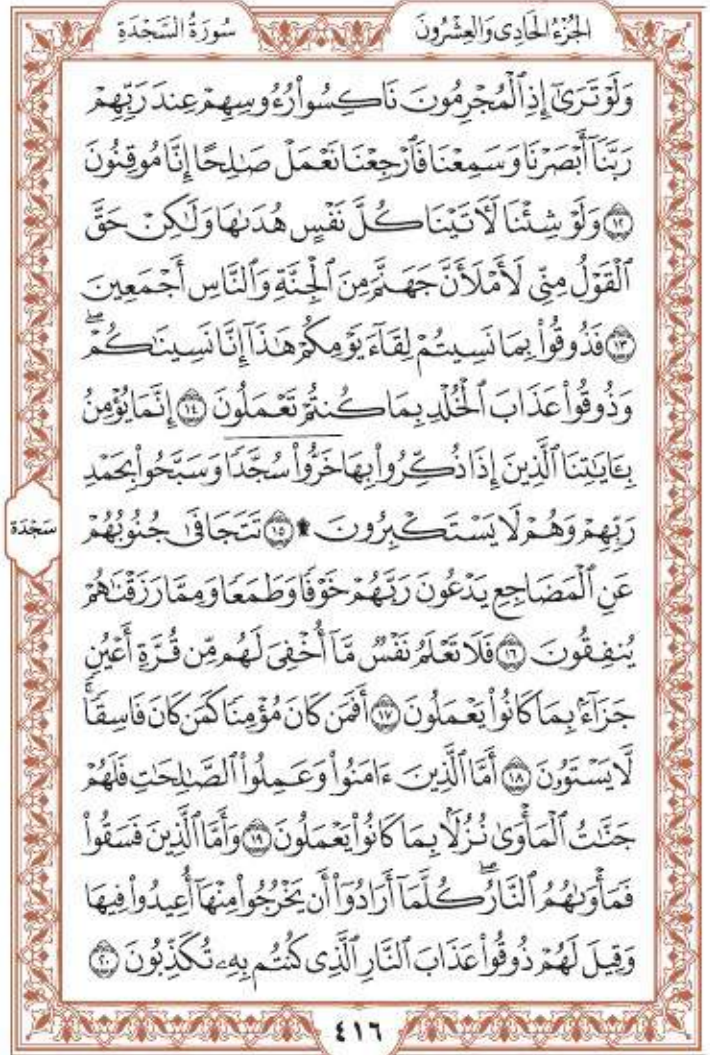 الجُزْءُ الحَادِي وَالعِشْرُونَ
سُورَةُ السَّجْدَةِ
وَلَوْ تَرَىٰٓ إِذِ ٱلْمُجْرِمُونَ نَاكِسُوا۟ رُءُوسِهِمْ عِندَ رَبِّهِمْ
رَبَّنَآ أَبْصَرْنَا وَسَمِعْنَا فَٱرْجِعْنَا نَعْمَلْ صَٰلِحًا إِنَّا مُوقِنُونَ
١٢ وَلَوْ شِئْنَا لَءَاتَيْنَا كُلَّ نَفْسٍ هُدَىٰهَا وَلَٰكِنْ حَقَّ
ٱلْقَوْلُ مِنِّى لَأَمْلَأَنَّ جَهَنَّمَ مِنَ ٱلْجِنَّةِ وَٱلنَّاسِ أَجْمَعِينَ
١٣ فَذُوقُوا۟ بِمَا نَسِيتُمْ لِقَآءَ يَوْمِكُمْ هَٰذَآ إِنَّا نَسِينَٰكُمْ ۖ
وَذُوقُوا۟ عَذَابَ ٱلْخُلْدِ بِمَا كُنتُمْ تَعْمَلُونَ ١٤ إِنَّمَا يُؤْمِنُ
بِـَٔايَٰتِنَا ٱلَّذِينَ إِذَا ذُكِّرُوا۟ بِهَا خَرُّوا۟ سُجَّدًا وَسَبَّحُوا۟ بِحَمْدِ
رَبِّهِمْ وَهُمْ لَا يَسْتَكْبِرُونَ ۩ ١٥ تَتَجَافَىٰ جُنُوبُهُمْ
سَجْدَة
عَنِ ٱلْمَضَاجِعِ يَدْعُونَ رَبَّهُمْ خَوْفًا وَطَمَعًا وَمِمَّا رَزَقْنَٰهُمْ
يُنفِقُونَ ١٦ فَلَا تَعْلَمُ نَفْسٌ مَّآ أُخْفِىَ لَهُم مِّن قُرَّةِ أَعْيُنٍ
جَزَآءًۢ بِمَا كَانُوا۟ يَعْمَلُونَ ١٧ أَفَمَن كَانَ مُؤْمِنًا كَمَن كَانَ فَاسِقًا ۚ
لَّا يَسْتَوُۥنَ ١٨ أَمَّا ٱلَّذِينَ ءَامَنُوا۟ وَعَمِلُوا۟ ٱلصَّٰلِحَٰتِ فَلَهُمْ
جَنَّٰتُ ٱلْمَأْوَىٰ نُزُلًۢا بِمَا كَانُوا۟ يَعْمَلُونَ ١٩ وَأَمَّا ٱلَّذِينَ فَسَقُوا۟
فَمَأْوَىٰهُمُ ٱلنَّارُ ۖ كُلَّمَآ أَرَادُوٓا۟ أَن يَخْرُجُوا۟ مِنْهَآ أُعِيدُوا۟ فِيهَا
وَقِيلَ لَهُمْ ذُوقُوا۟ عَذَابَ ٱلنَّارِ ٱلَّذِى كُنتُم بِهِۦ تُكَذِّبُونَ ٢٠
٤١٦